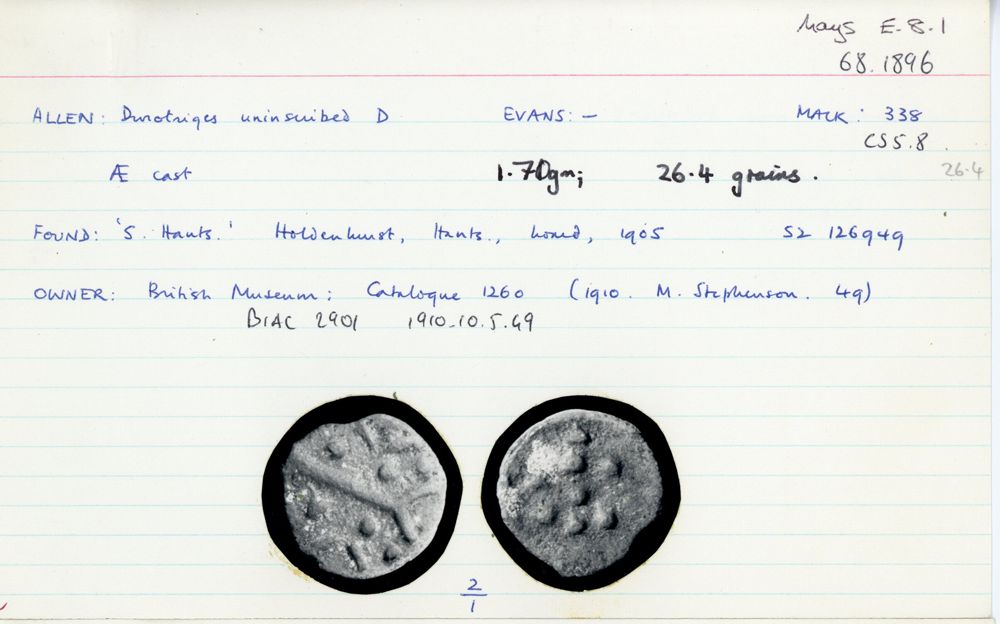 Mays E.8.1
68.1896
ALLEN: Durotriges uninscribed D EVANS: — MACK: 338
CS5.8
Æ cast 1.70gm; 26.4 grains. 26.4
FOUND: 'S. Hants.' Holdenhurst, Hants., hoard, 1905 SZ 126949
OWNER: British Museum; Catalogue 1260 (1910. M. Stephenson. 49)
BIAC 2901 1910.10.5.49
2
1